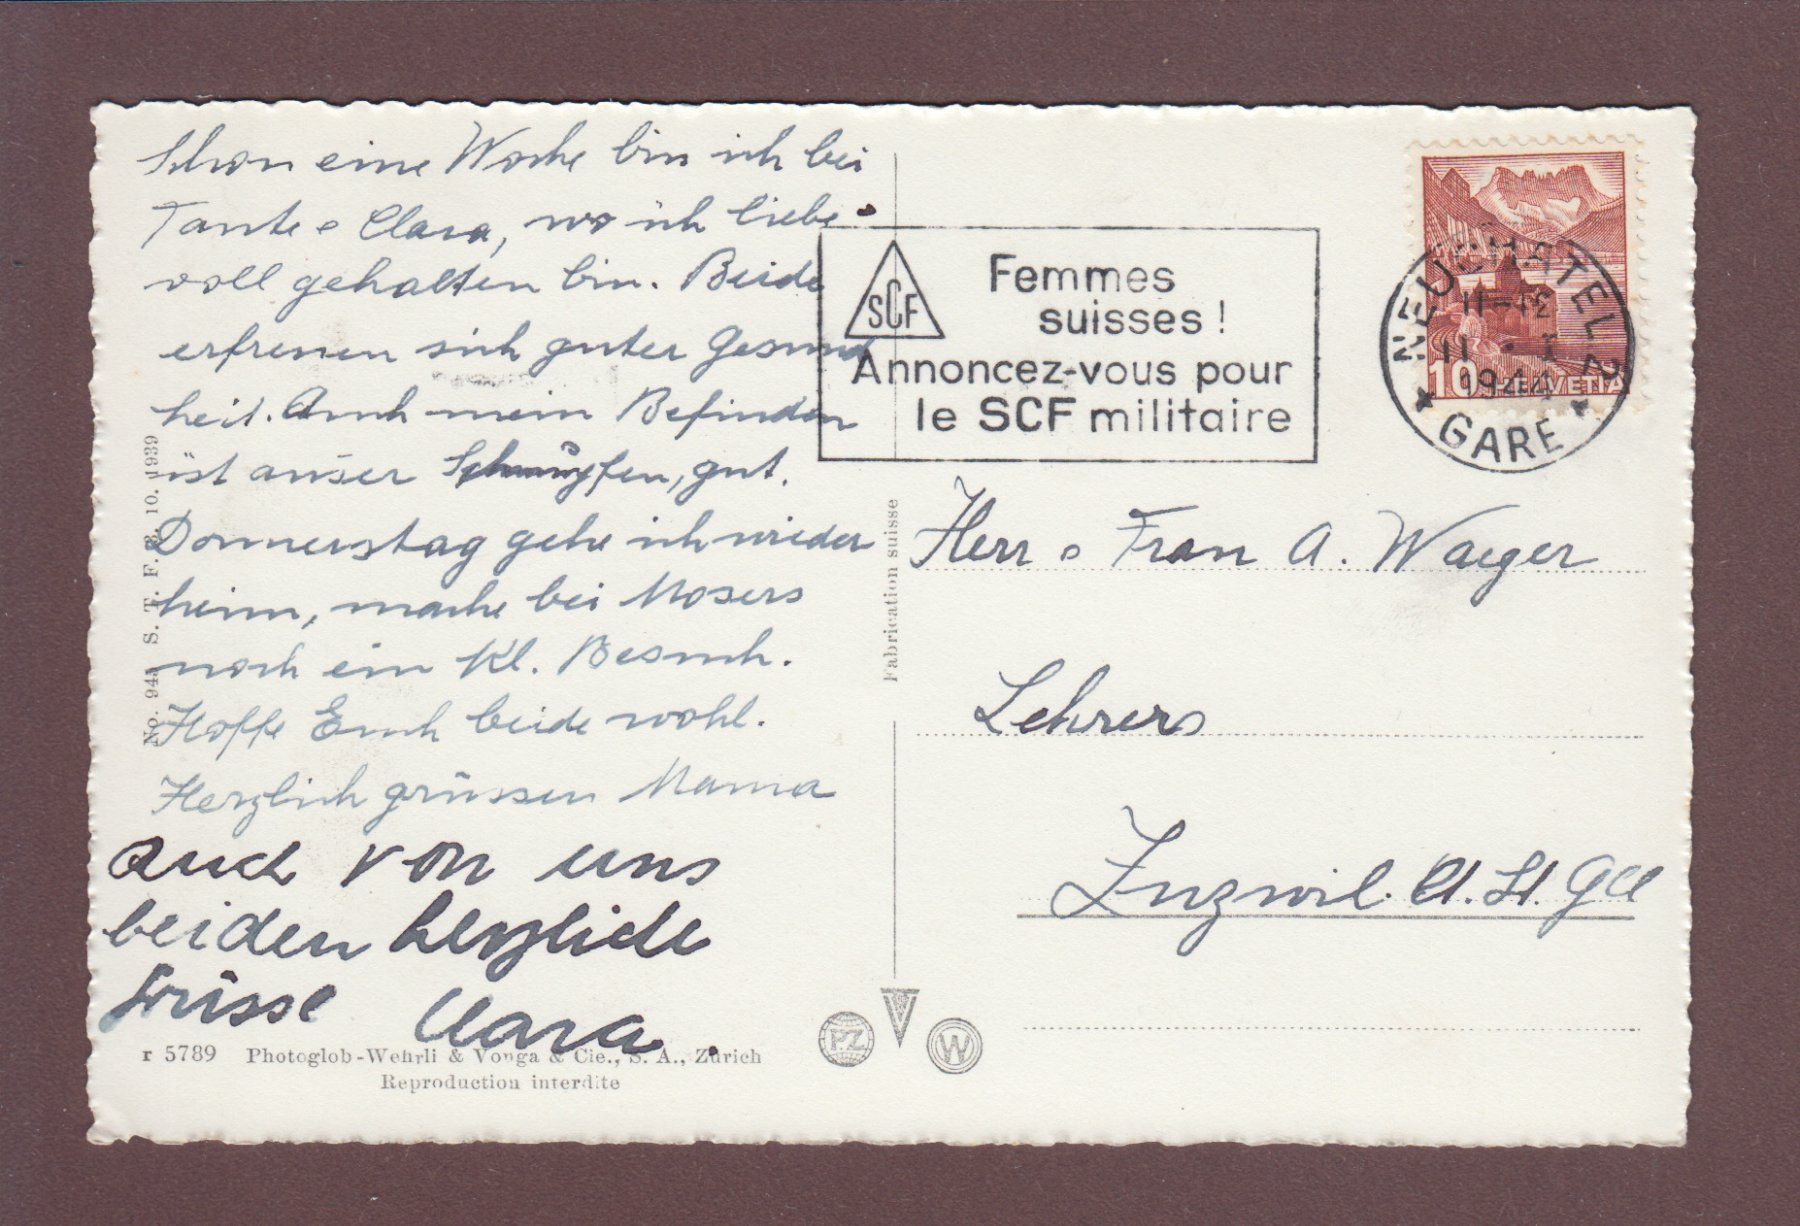 Schon eine Woche bin ich bei
Tante Clara, wo ich liebe-
voll gehalten bin. Beide
erfreuen sich guter Gesund
heit. Auch mein Befinden
ist ausser Schnupfen, gut.
Donnerstag gehe ich wieder
heim, mache bei Mosers
noch ein kl. Besuch.
Hoffe Euch beide wohl.
Herzlich grüssen Mama
auch von uns
beiden herzliche
Grüsse Clara.
No. 945 S. T. F. B. 10. 1939
r 5789 Photoglob-Wehrli & Vouga & Cie., S. A., Zürich
Reproduction interdite
Fabrication suisse
PZ
W
SCF
Femmes
suisses !
Annoncez-vous pour
le SCF militaire
NEUCHATEL 2
11-12
11.·I
1944
GARE
10 HELVETIA
Herr e Frau A. Waeger
Lehrers
Inzwil. Ct. St. Gll